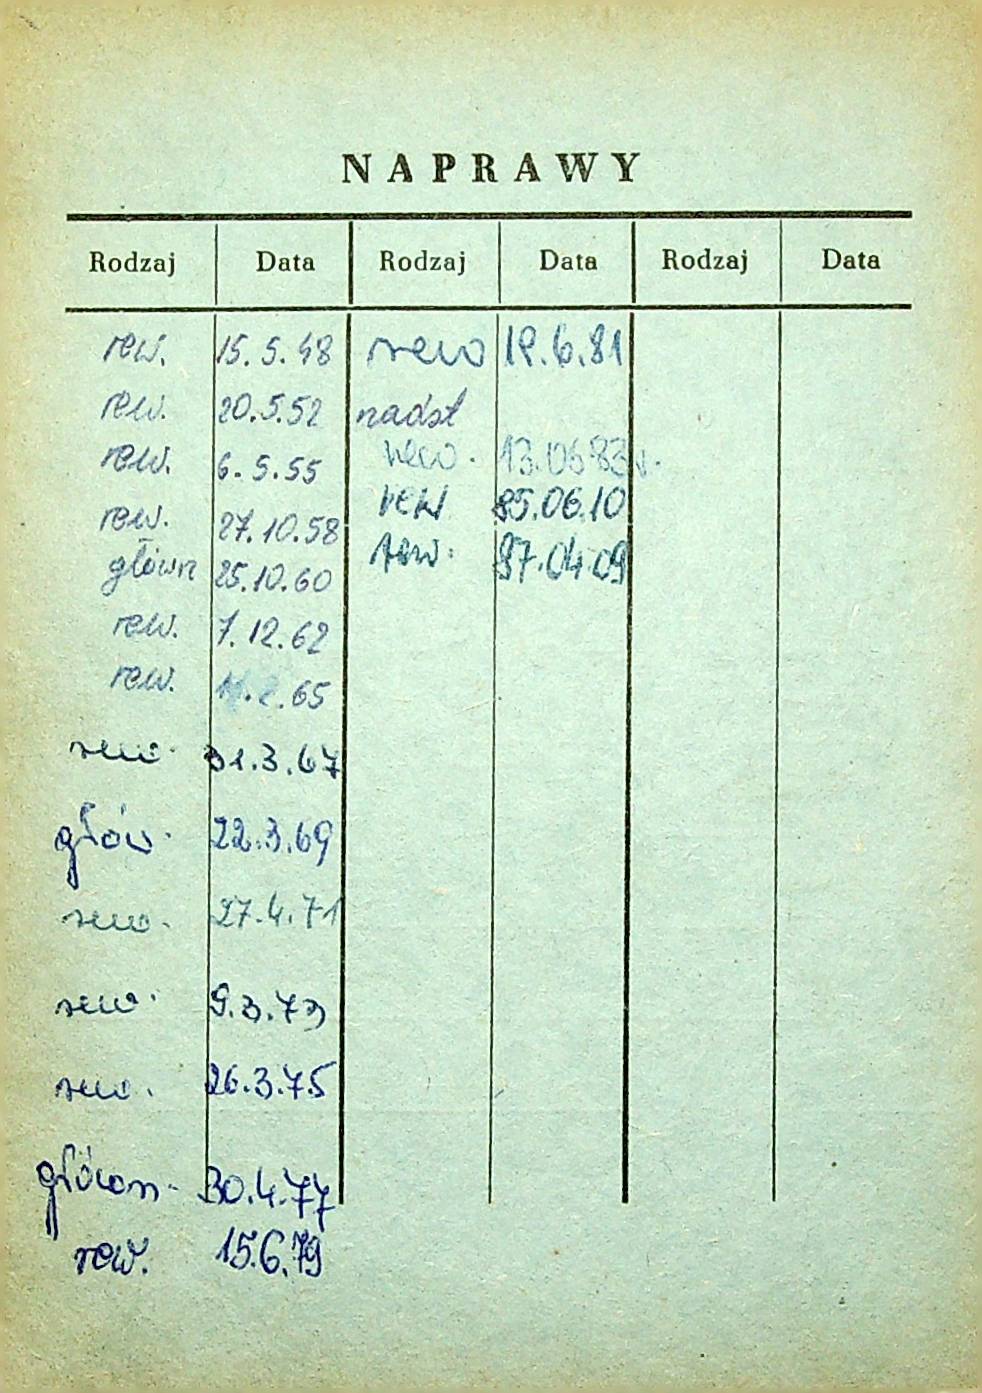 NAPRAWY
Rodzaj Data Rodzaj Data Rodzaj Data
rew. 15.5.48
rew. 20.5.52
rew. 6.5.55
rew. 27.10.58
główn 25.10.60
rew. 7.12.62
rew. .65
rew. 31.3.67
głów. 22.3.69
rew. 27.4.71
rew. 9.3.73
rew. 26.3.75
główn. 30.4.77
rew. 15.6.79
rew 19.6.81
nadst
rew. 13.06 83 r.
rew 85.06.10
rew. 87.04.09